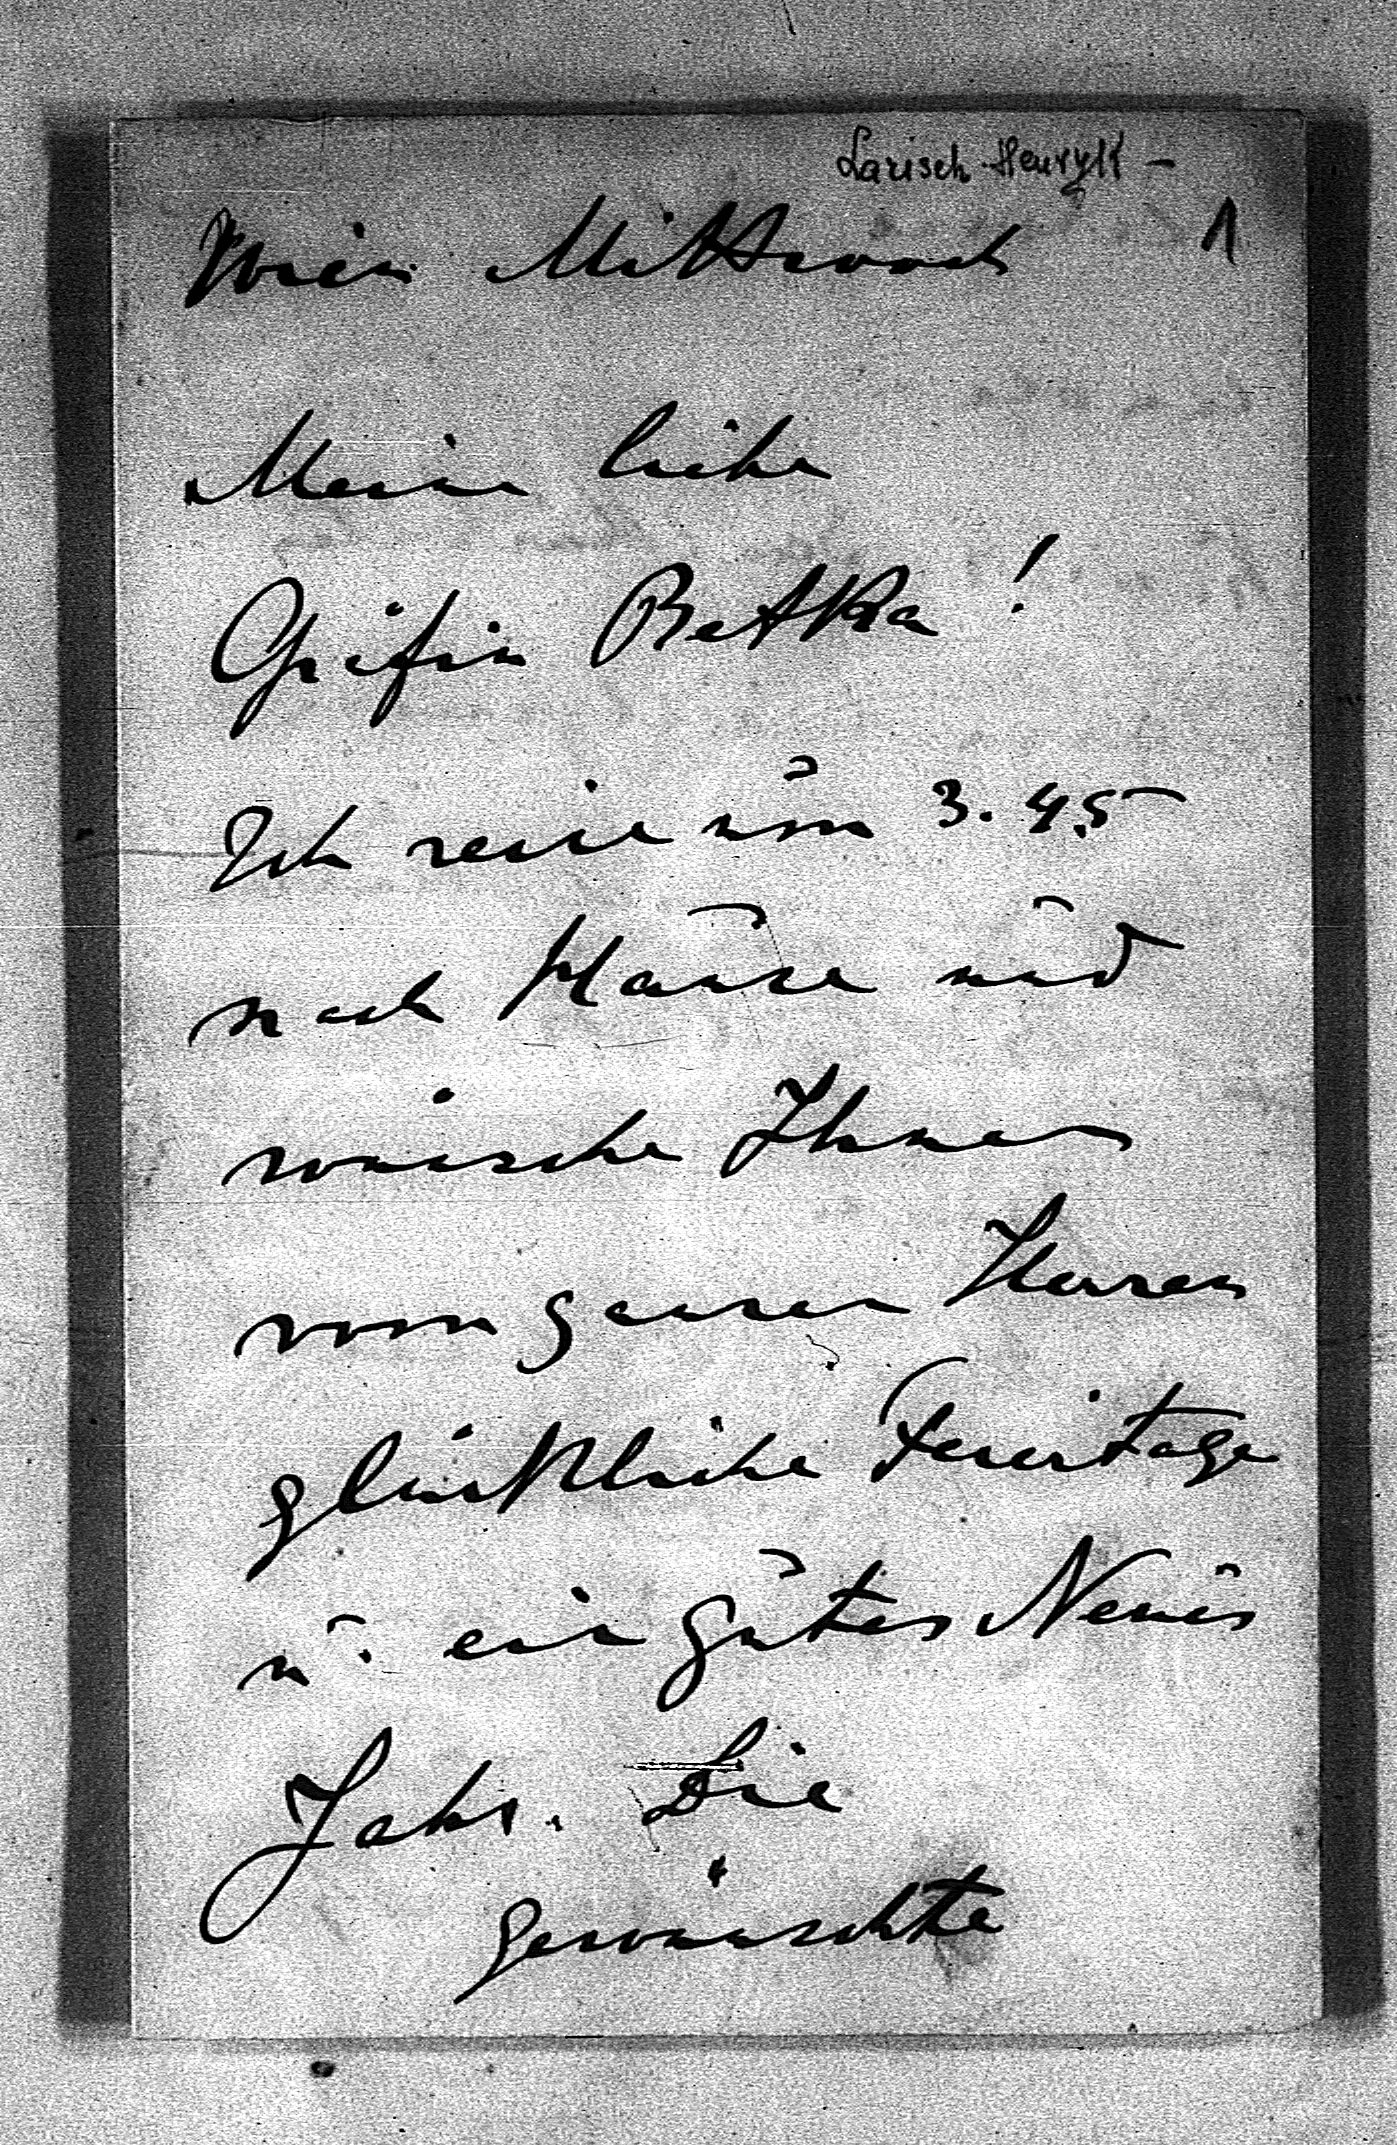 Larisch-Henryk -
1
Wien Mittwoch
Meine liebe
Gräfin Betka!
Ich reise um 3.45
nach Hause und
wünsche Ihnen
vom ganzen Herzen
glückliche Feiertage
u. ein gutes Neues
Jahr. Die
gewünschte